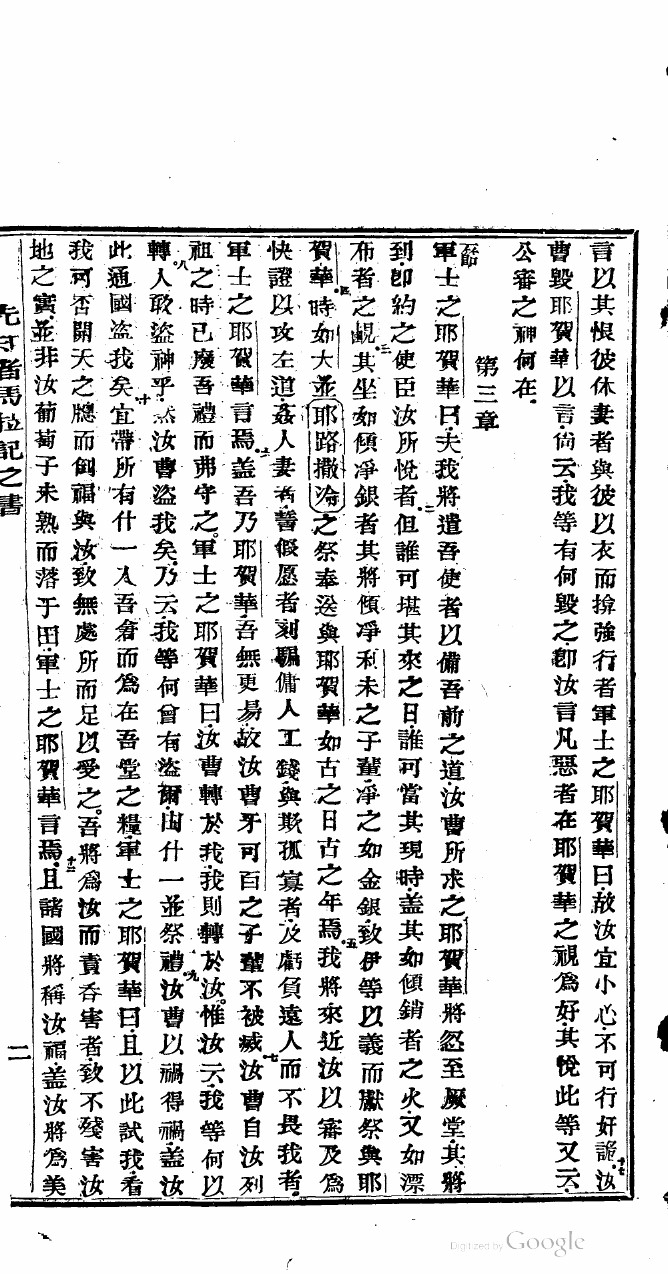 言以其恨彼休妻者與彼以衣而揜強行者軍士之耶賀華曰故汝宜小心不可行奸詭十七汝
曹毀耶賀華以言尙云我等有何毀之卽汝言凡惡者在耶賀華之視爲好其悅此等又云
公審之神何在
第三章
一節軍士之耶賀華曰夫我將遣吾使者以備吾前之道汝曹所求之耶賀華將忽至厥堂其將
到卽約之使臣汝所悅者二但誰可堪其來之日誰可當其現時蓋其如傾銷者之火又如漂
布者之梘三其坐如傾凈銀者其將傾凈利未之子輩凈之如金銀致伊等以義而獻祭與耶
賀華四時如大並耶路撒冷之祭奉送與耶賀華如古之日古之年焉五我將來近汝以審及爲
快證以攻左道姦人妻者誓假愿者刻騙傭人工錢與欺孤寡者及虧負遠人而不畏我者
軍士之耶賀華言焉六蓋吾乃耶賀華吾無更易故汝曹牙可百之子輩不被滅七汝曹自汝列
祖之時已廢吾禮而弗守之軍士之耶賀華曰汝曹轉於我我則轉於汝惟汝云我等何以
轉八人敢盜神乎然汝曹盜我矣乃云我等何曾有盜爾由什一並祭禮九汝曹以禍得禍蓋汝
此通國盜我矣十宜帶所有什一入吾倉而爲在吾堂之糧軍士之耶賀華曰且以此試我看
我可否開天之牕而倒福與汝致無處所而足以受之吾將爲汝而責吞害者致不殘害汝
地之實並非汝葡萄子未熟而落于田軍士之耶賀華言焉十二且諸國將稱汝福蓋汝將爲美
先知者馬拉記之書
二
Digitized by Google